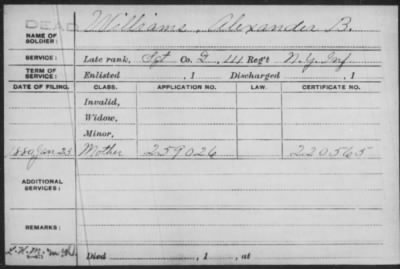 DEAD
NAME OF SOLDIER: Williams, Alexander B.
SERVICE: Late rank, Sgt Co. D, 44 Reg't N.Y. Inf.
TERM OF SERVICE: Enlisted , 1 Discharged , 1
DATE OF FILING. CLASS. APPLICATION NO. LAW. CERTIFICATE NO.
Invalid,
Widow,
Minor,
1880 Jan 23 Mother 259026 220565
ADDITIONAL SERVICES:
REMARKS:
Died , 1 , at